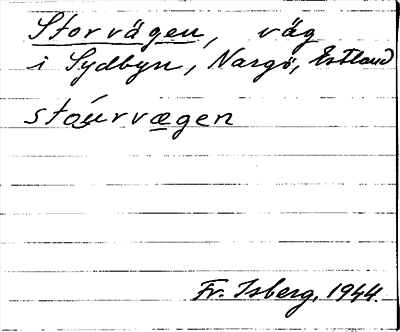 Storvägen, väg
i Sydbyn, Nargö, Estland
stóurvægen
Fr. Isberg, 1944.